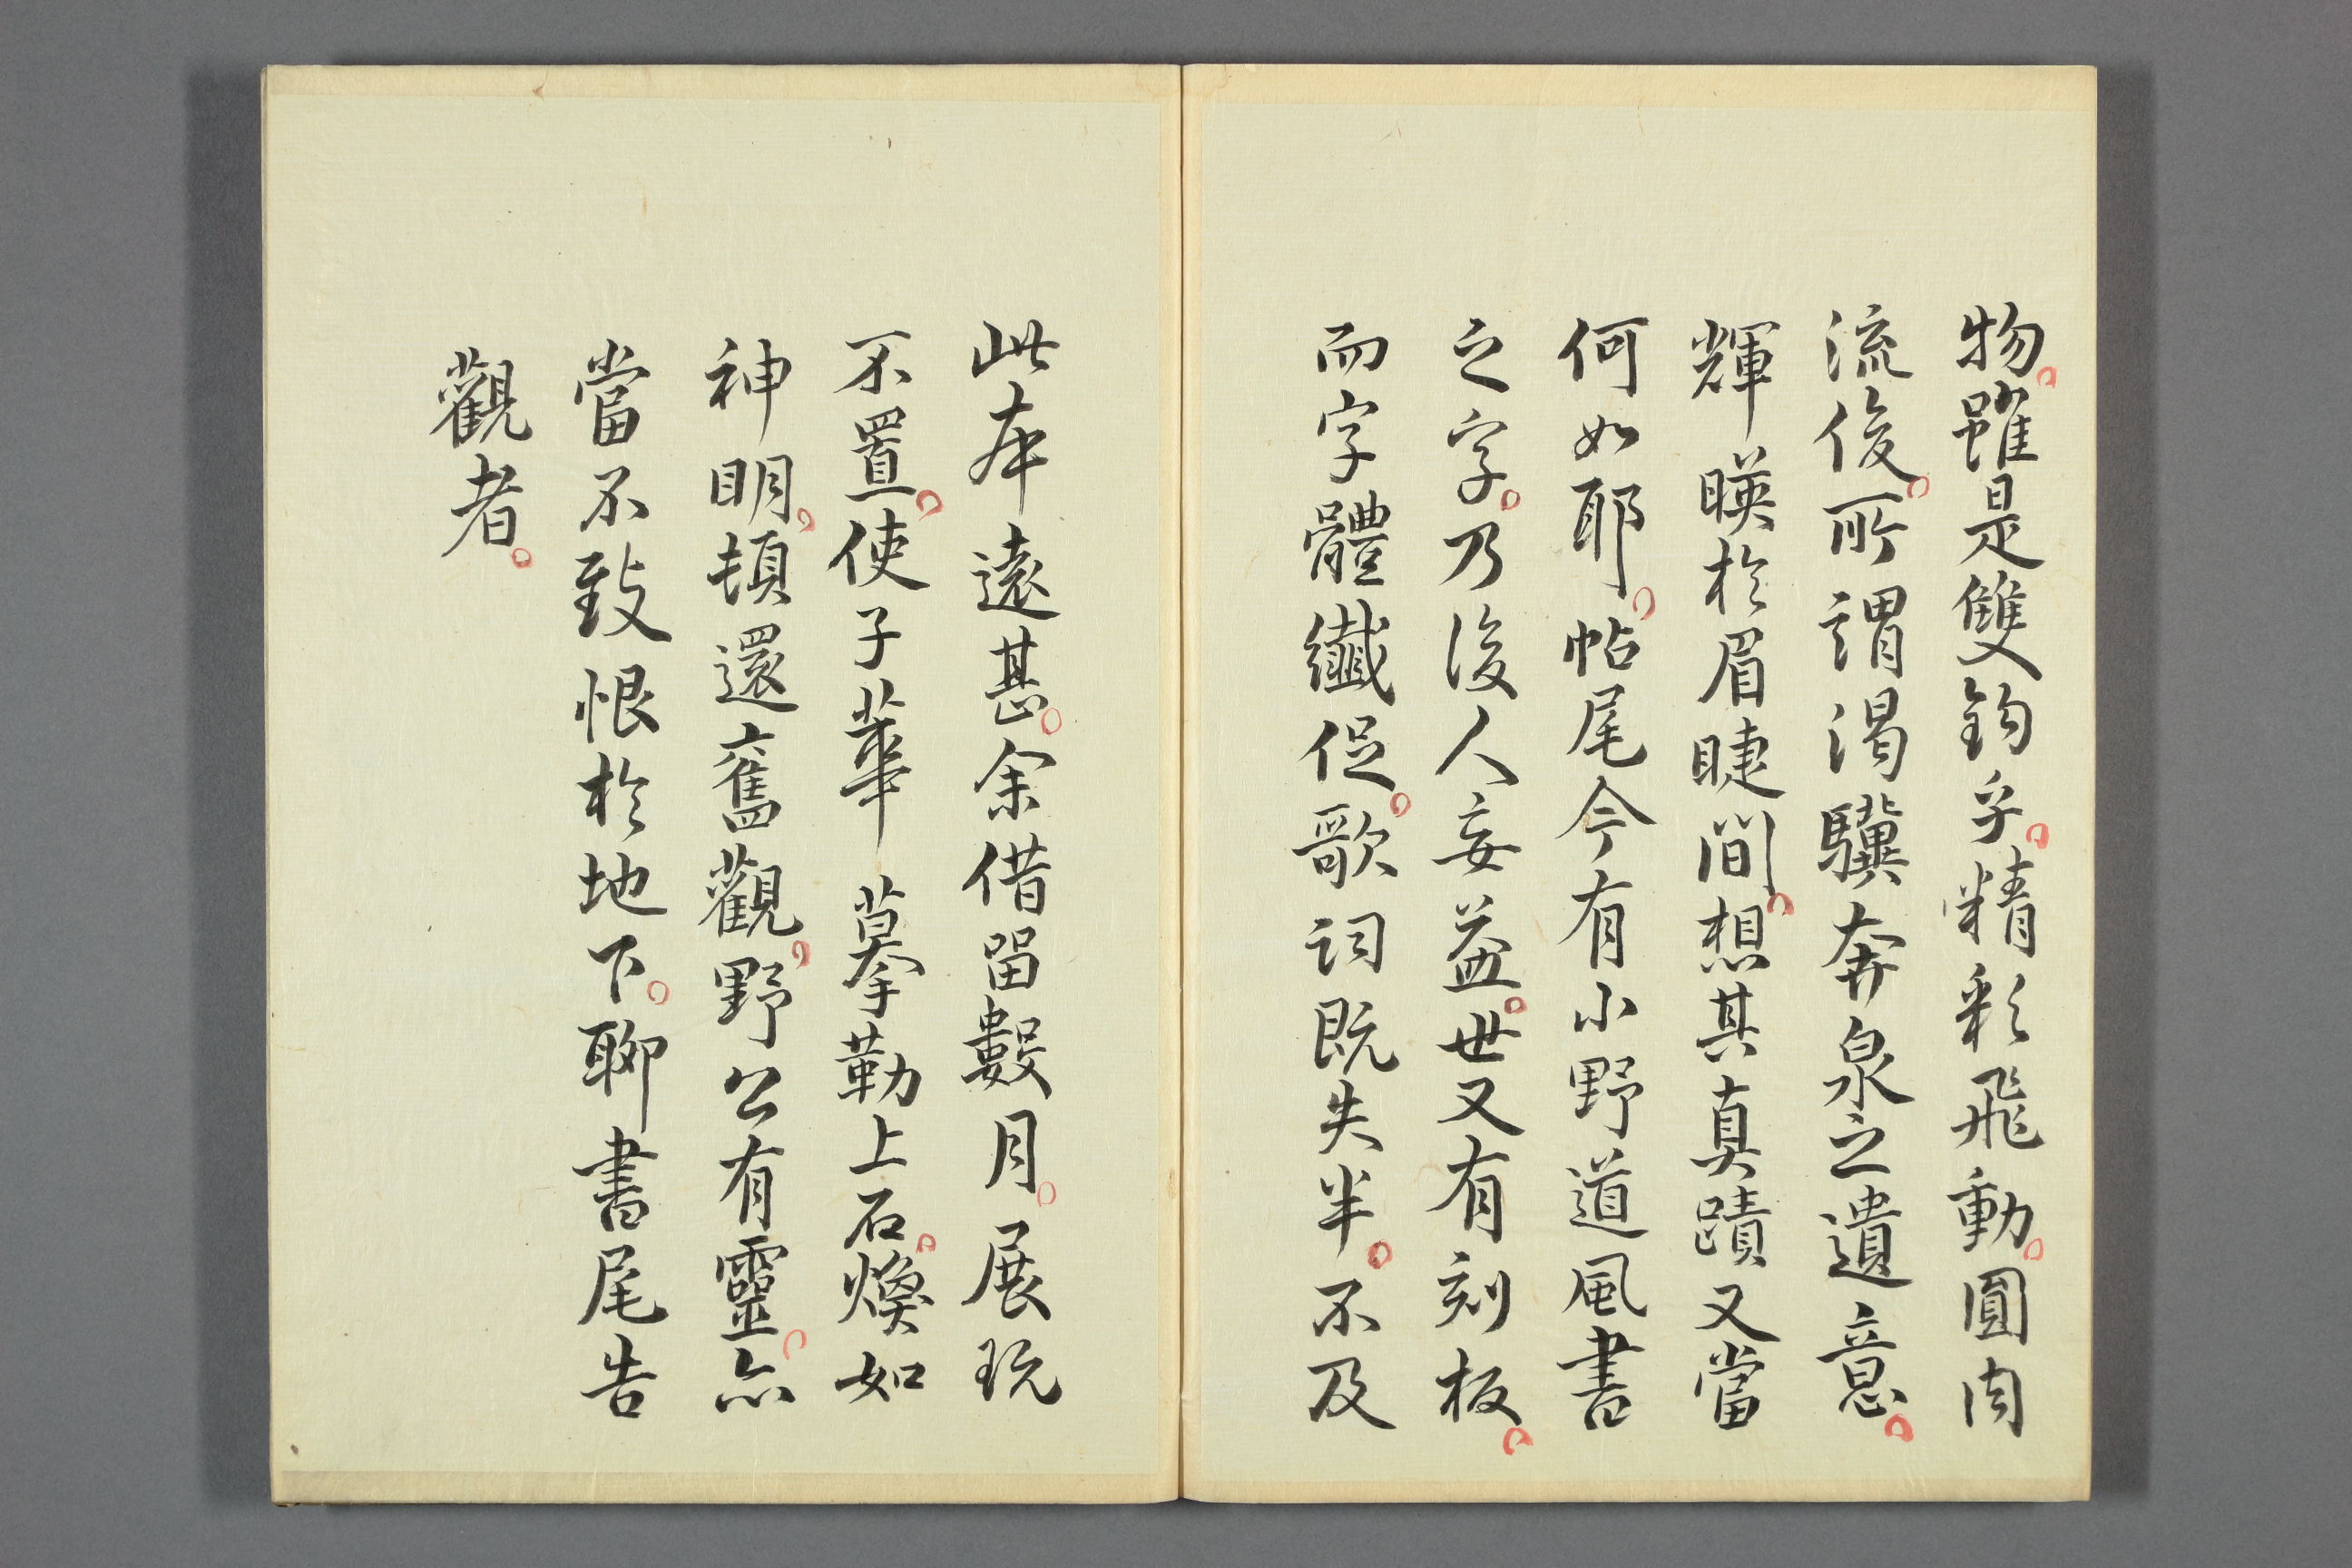 物。雖是雙鈎乎。精彩飛動。圓肉
流俊。所謂渴驥奔泉之遺意。
輝暎於眉睫間。想其真蹟又當
何如耶。帖尾今有小野道風書
之字。乃後人妄益。世又有刻板。
而字體纖促。歌詞既失半。不及
此本遠甚。余借留數月。展玩
不置。使子華摹勒上石。煥如
神明。頓還舊觀。野公有靈。亦
當不致恨於地下。聊書尾告
觀者。